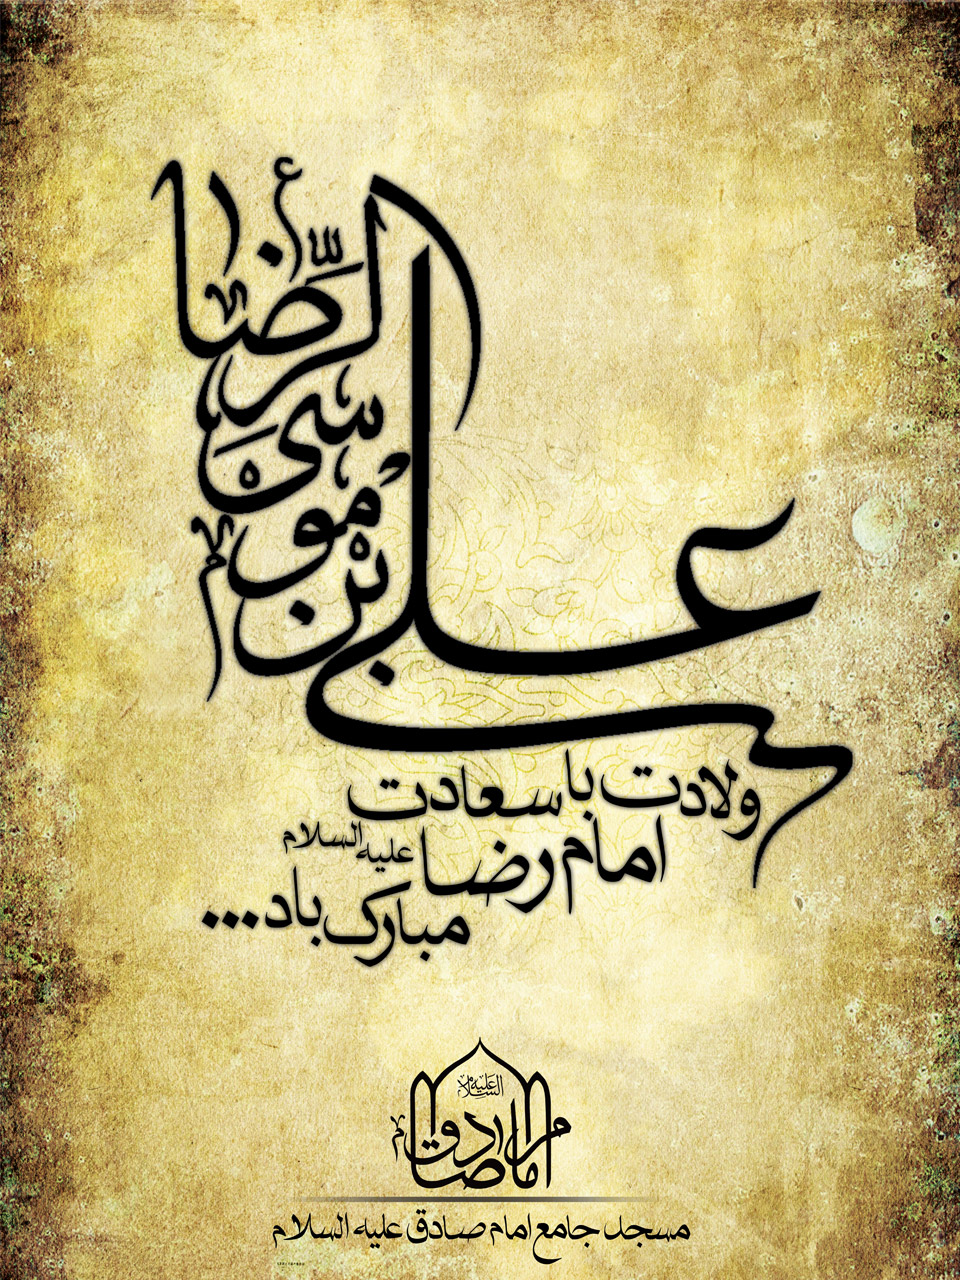 علی بن موسی الرضا
ولادت با سعادت
امام رضا علیه السلام
مبارک باد...
امام صادق علیه السلام
مسجد جامع امام صادق علیه السلام